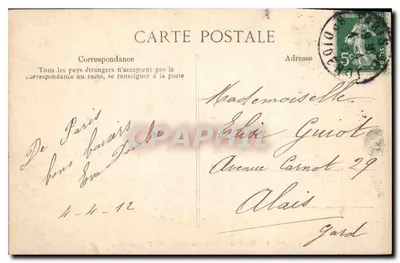 CARTE POSTALE
Correspondance
Tous les pays étrangers n'acceptent pas la
correspondance au recto, se renseigner à la poste
Adresse
De Paris
bons baisers
4-4-12
Mademoiselle
Elise Guiot
Avenue Carnot 29
Alais
Gard
5c
CARTE-POSTALE